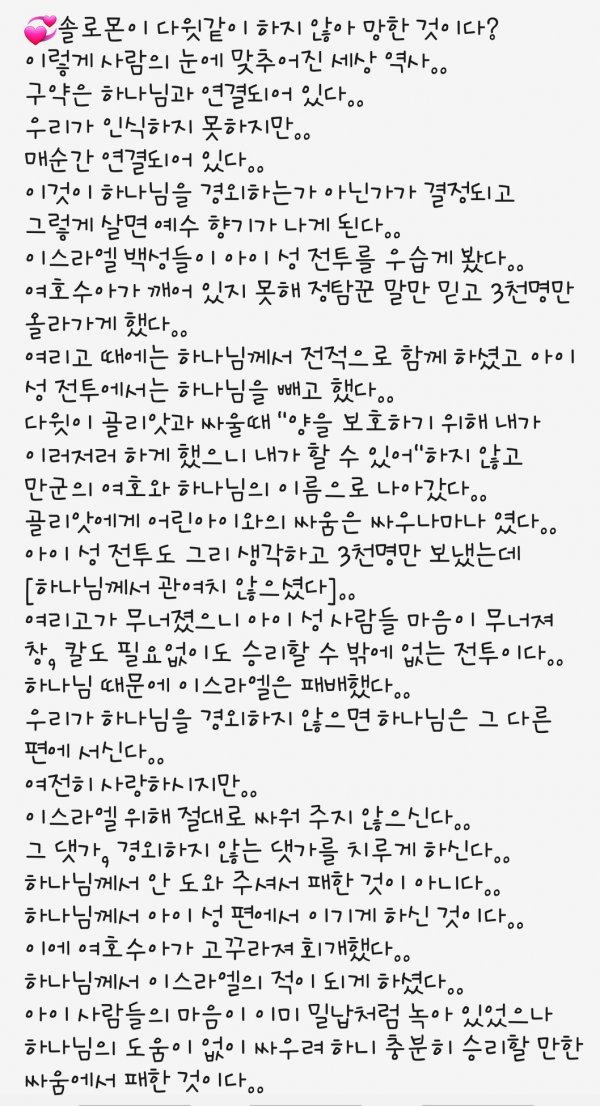 💞솔로몬이 다윗같이 하지 않아 망한 것이다?
이렇게 사람의 눈에 맞추어진 세상 역사..
구약은 하나님과 연결되어 있다..
우리가 인식하지 못하지만..
매순간 연결되어 있다..
이것이 하나님을 경외하는가 아닌가가 결정되고
그렇게 살면 예수 향기가 나게 된다..
이스라엘 백성들이 아이 성 전투를 우습게 봤다..
여호수아가 깨어 있지 못해 정탐꾼 말만 믿고 3천명만
올라가게 했다..
여리고 때에는 하나님께서 전적으로 함께 하셨고 아이
성 전투에서는 하나님을 빼고 했다..
다윗이 골리앗과 싸울때 "양을 보호하기 위해 내가
이러저러 하게 했으니 내가 할 수 있어"하지 않고
만군의 여호와 하나님의 이름으로 나아갔다..
골리앗에게 어린아이와의 싸움은 싸우나마나 였다..
아이 성 전투도 그리 생각하고 3천명만 보냈는데
[하나님께서 관여치 않으셨다]..
여리고가 무너졌으니 아이 성 사람들 마음이 무너져
창, 칼도 필요없이도 승리할 수 밖에 없는 전투이다..
하나님 때문에 이스라엘은 패배했다..
우리가 하나님을 경외하지 않으면 하나님은 그 다른
편에 서신다..
여전히 사랑하시지만..
이스라엘 위해 절대로 싸워 주지 않으신다..
그 댓가, 경외하지 않는 댓가를 치루게 하신다..
하나님께서 안 도와 주셔서 패한 것이 아니다..
하나님께서 아이 성 편에서 이기게 하신 것이다..
이에 여호수아가 고꾸라져 회개했다..
하나님께서 이스라엘의 적이 되게 하셨다..
아이 사람들의 마음이 이미 밀납처럼 녹아 있었으나
하나님의 도움이 없이 싸우려 하니 충분히 승리할 만한
싸움에서 패한 것이다..